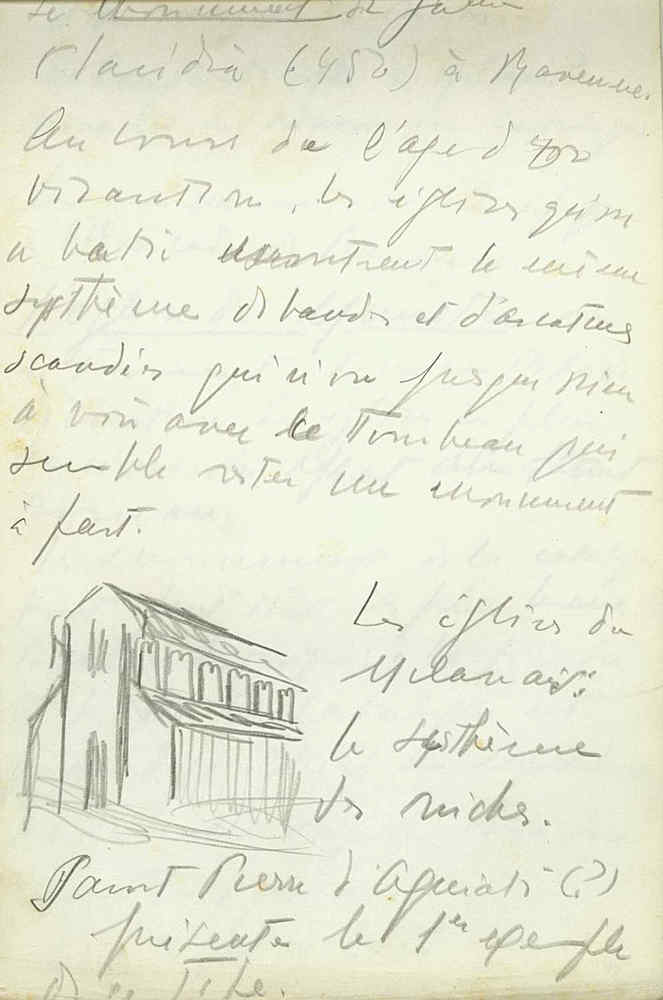 Le Monument de Galla
Placidia (450) à Ravenne.
Au cours de l'age d'or
bizantin, les églises qu'on
a bati montrent le même
systhème de bandes et d'arcatures
scandées qui n'ont presque rien
à voir avec le Tombeau qui
semble rester un monument
à part.
Les églises du
Milanais:
le systhème
des niches.
Saint Pierre d'Agliati (?)
présente le 1er exemple
de ce Type.